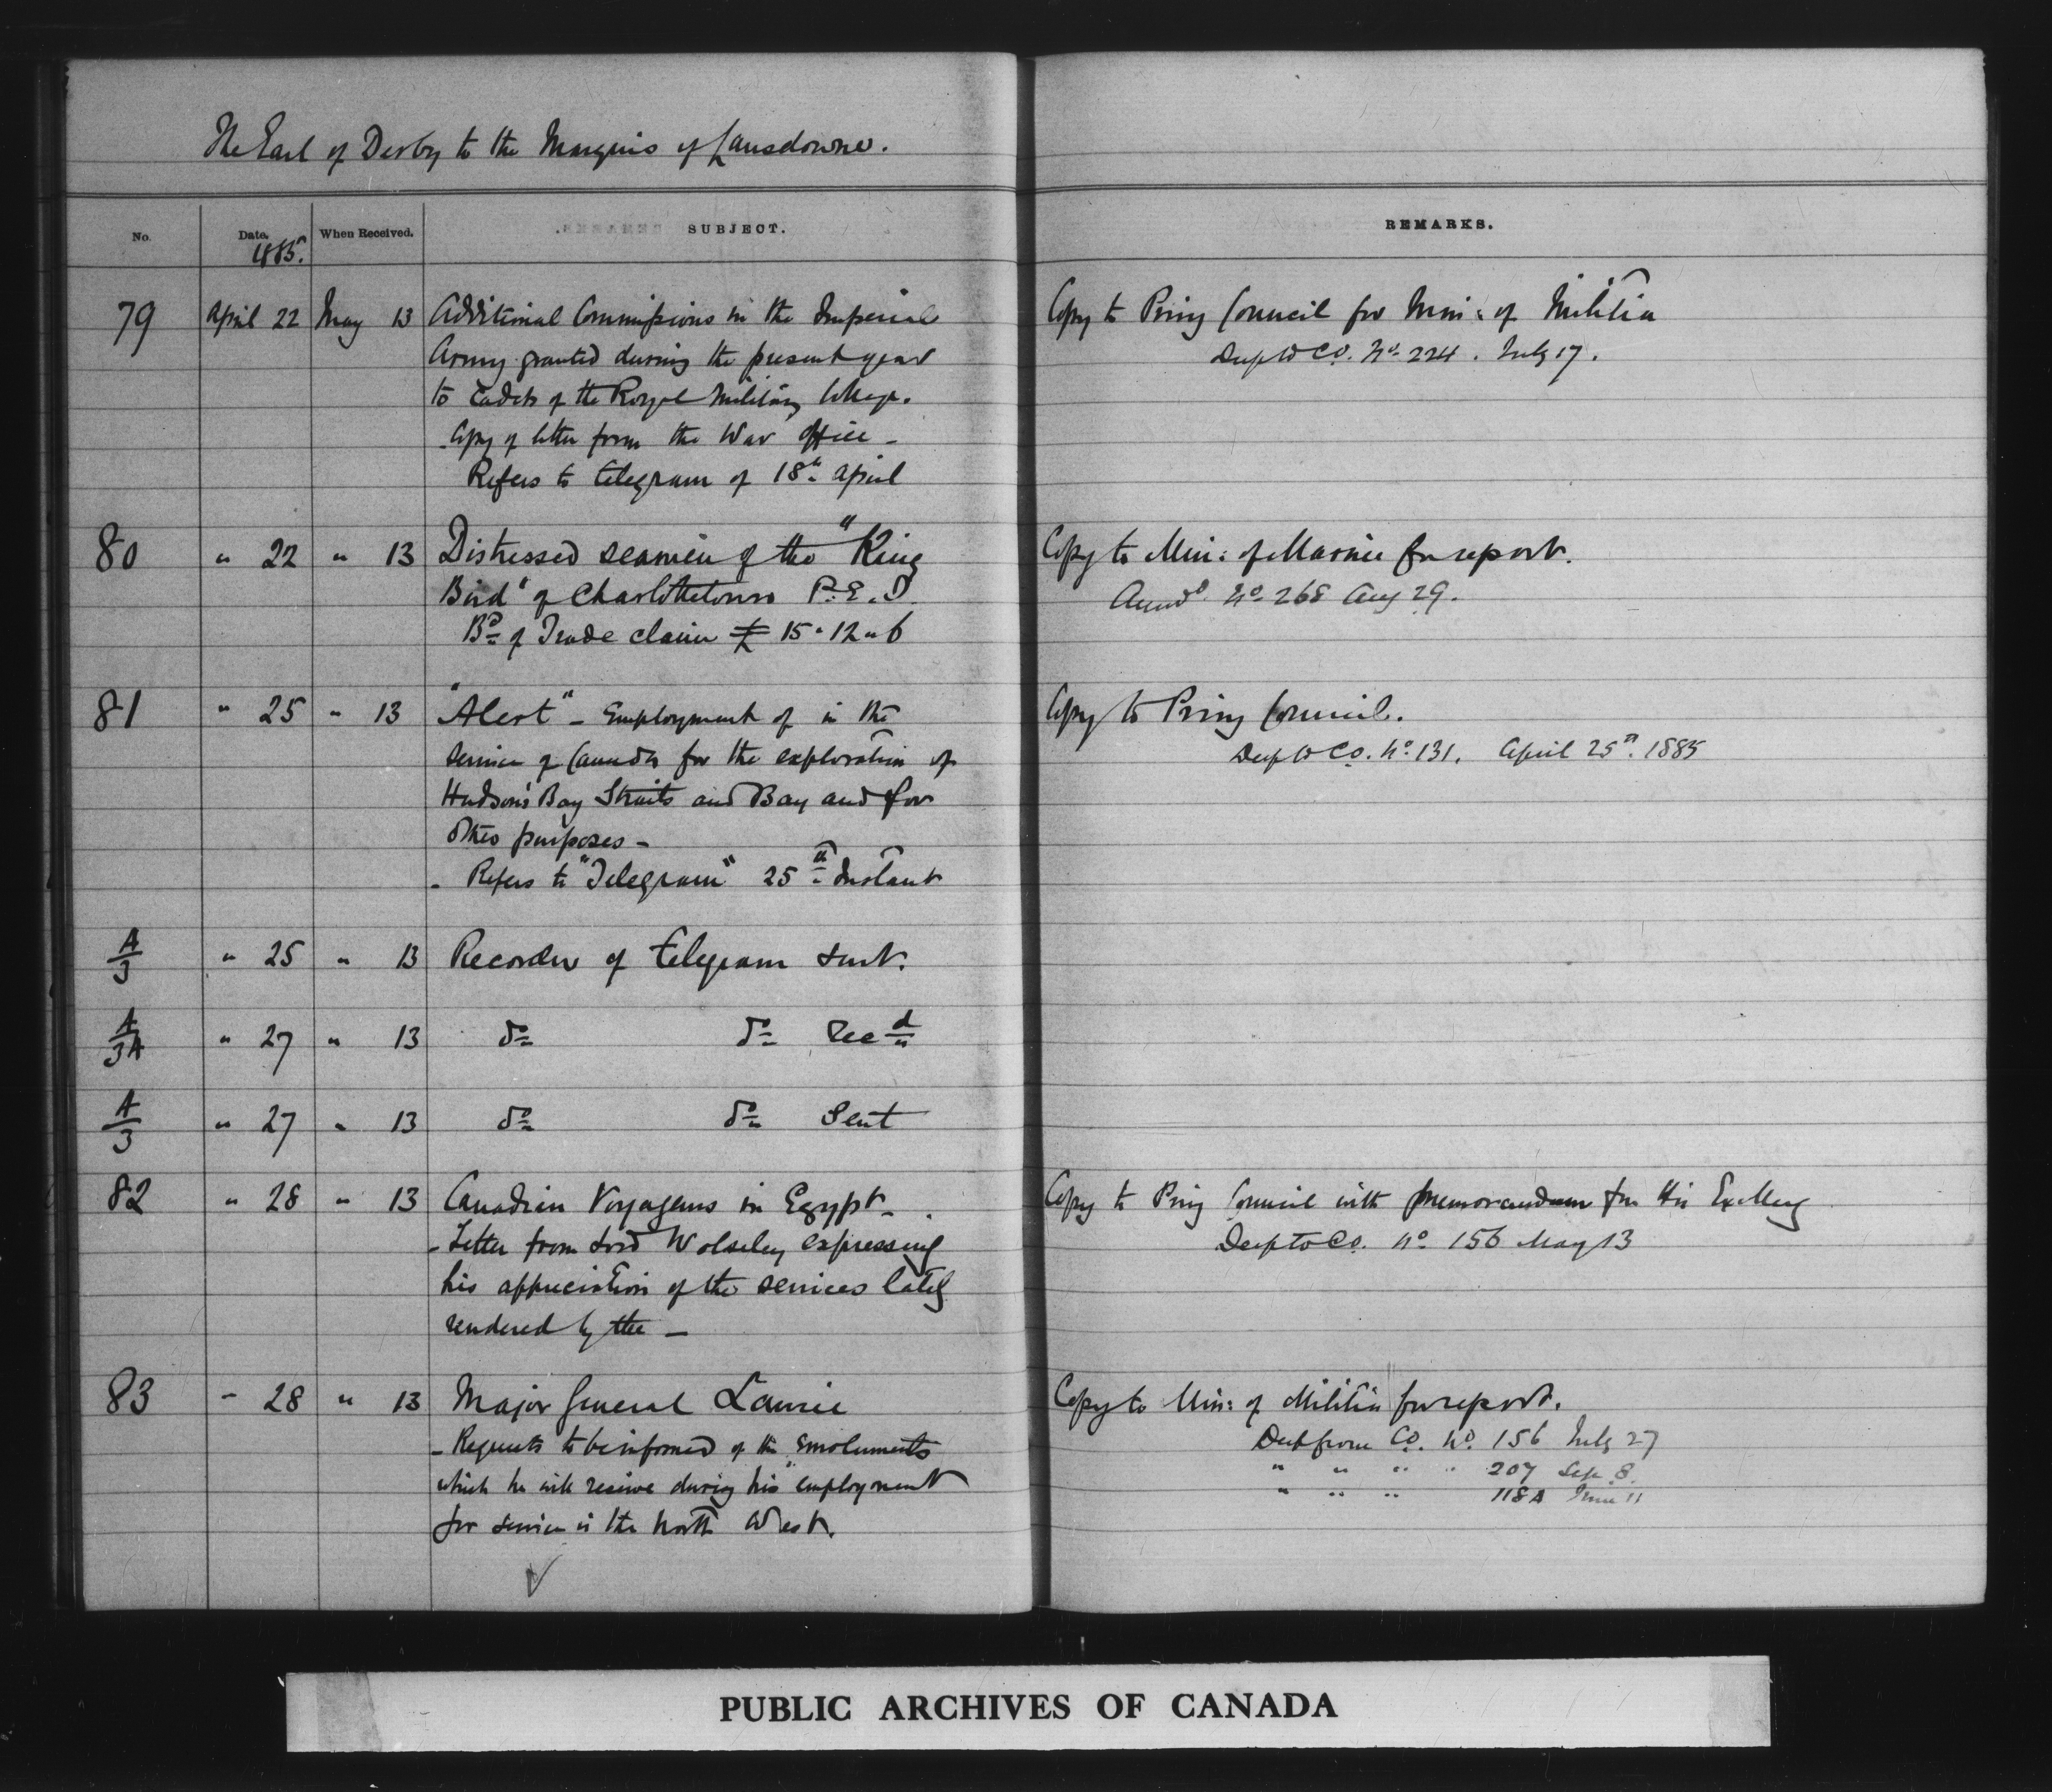 The Earl of Derby to the Marquis of Lansdowne.
No. Date. When Received. SUBJECT. REMARKS.
1885.
79 April 22 May 13 Additional Commissions in the Imperial
Army granted during the present year
to Cadets of the Royal Military College.
Copy of letter from the War Office -
Refers to telegram of 18th April
Copy to Privy Council for Min: of Militia
Desp to C.O. No. 224. July 17.
80 " 22 " 13 Distressed seamen of the "King
Bird" of Charlottetown P.E.I.
Bd of Trade claim £ 15 " 12 " 6
Copy to Min: of Marine for report.
Answd No 268 Aug 29.
81 " 25 " 13 "Alert" - Employment of in the
service of Canada for the exploration of
Hudson's Bay Straits and Bay and for
other purposes -
- Refers to "Telegram" 25th Instant
Copy to Privy Council.
Desp to C.O. No. 131. April 25th. 1885
A/3 " 25 " 13 Recorder of telegram sent.
A/3A " 27 " 13 do do Recd
A/3 " 27 " 13 do do Sent
82 " 28 " 13 Canadian Voyageurs in Egypt -
- Letter from Lord Wolseley expressing
his appreciation of the services lately
rendered by the -
Copy to Privy Council with memorandum for His Excellency
Desp to C.O. No 156 May 13
83 " 28 " 13 Major General Laurie
- Requests to be informed of the emoluments
which he will receive during his employment
for service in the North West.
Copy to Min: of Militia for report.
Desp from C.O. No. 156 July 27
" " " " 207 Sep. 8.
" " " 118A June 11
PUBLIC ARCHIVES OF CANADA